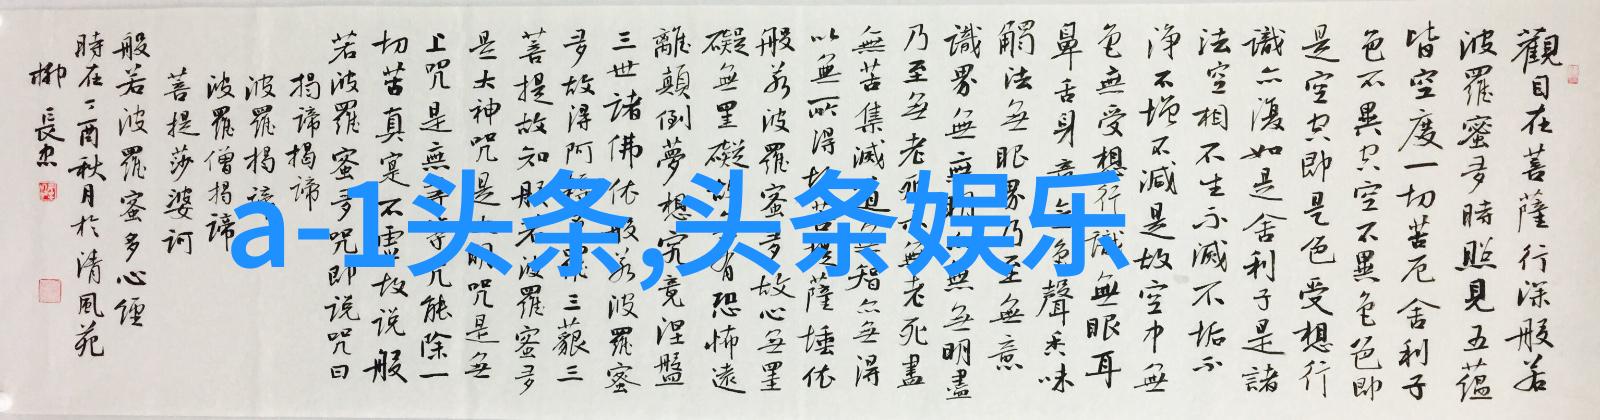 觀自在菩薩行深般若
波羅蜜多時照見五蘊
皆空度一切苦厄舍利子
色不異空空不異色色即
是空空即是色受想行
識亦復如是舍利子是諸
法空相不生不滅不垢不
淨不增不減是故空中無
色無受想行識無眼耳
鼻舌身意無色聲香味
觸法無眼界乃至無意
識界無無明亦無無明盡
乃至無老死亦無老死盡
無苦集滅道無智亦無得
以無所得故菩提薩埵依
般若波羅蜜多故心無罣
礙無罣礙故無有恐怖遠
離顛倒夢想究竟涅盤
三世諸佛依般若波羅蜜
多故得阿耨多羅三藐三
菩提故知般若波羅蜜多
是大神咒是大明咒是無
上咒是無等等咒能除一
切苦真實不虛故說般
若波羅蜜多咒即說咒曰
揭諦揭諦
波羅揭諦
波羅僧揭諦
菩提莎婆訶
般若波羅蜜多心經
時在丁酉秋月於清風苑
柳長忠
a-1头条,头条娱乐